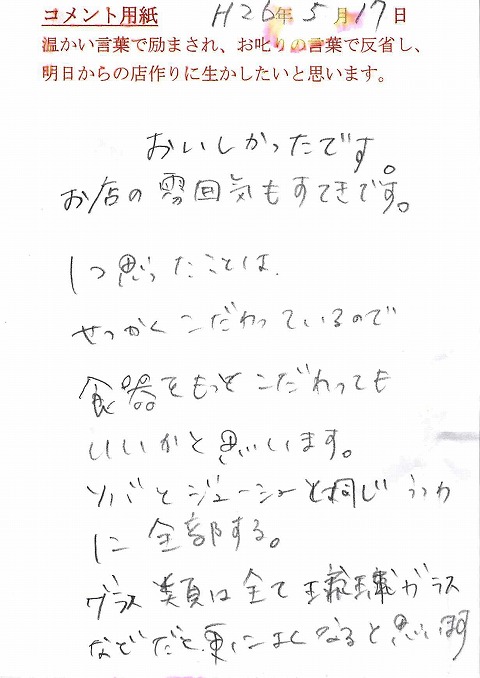 コメント用紙 H26年5月17日
温かい言葉で励まされ、お叱りの言葉で反省し、
明日からの店作りに生かしたいと思います。
おいしかったです。
お店の雰囲気もすてきです。
1つ思ったことは、
せっかくこだわっているので
食器をもっとこだわっても
いいかと思いいます。
ソバとジューシーと同じうつわ
に全部する。
グラス類は全て琉球ガラス
などだと更によくなると思います